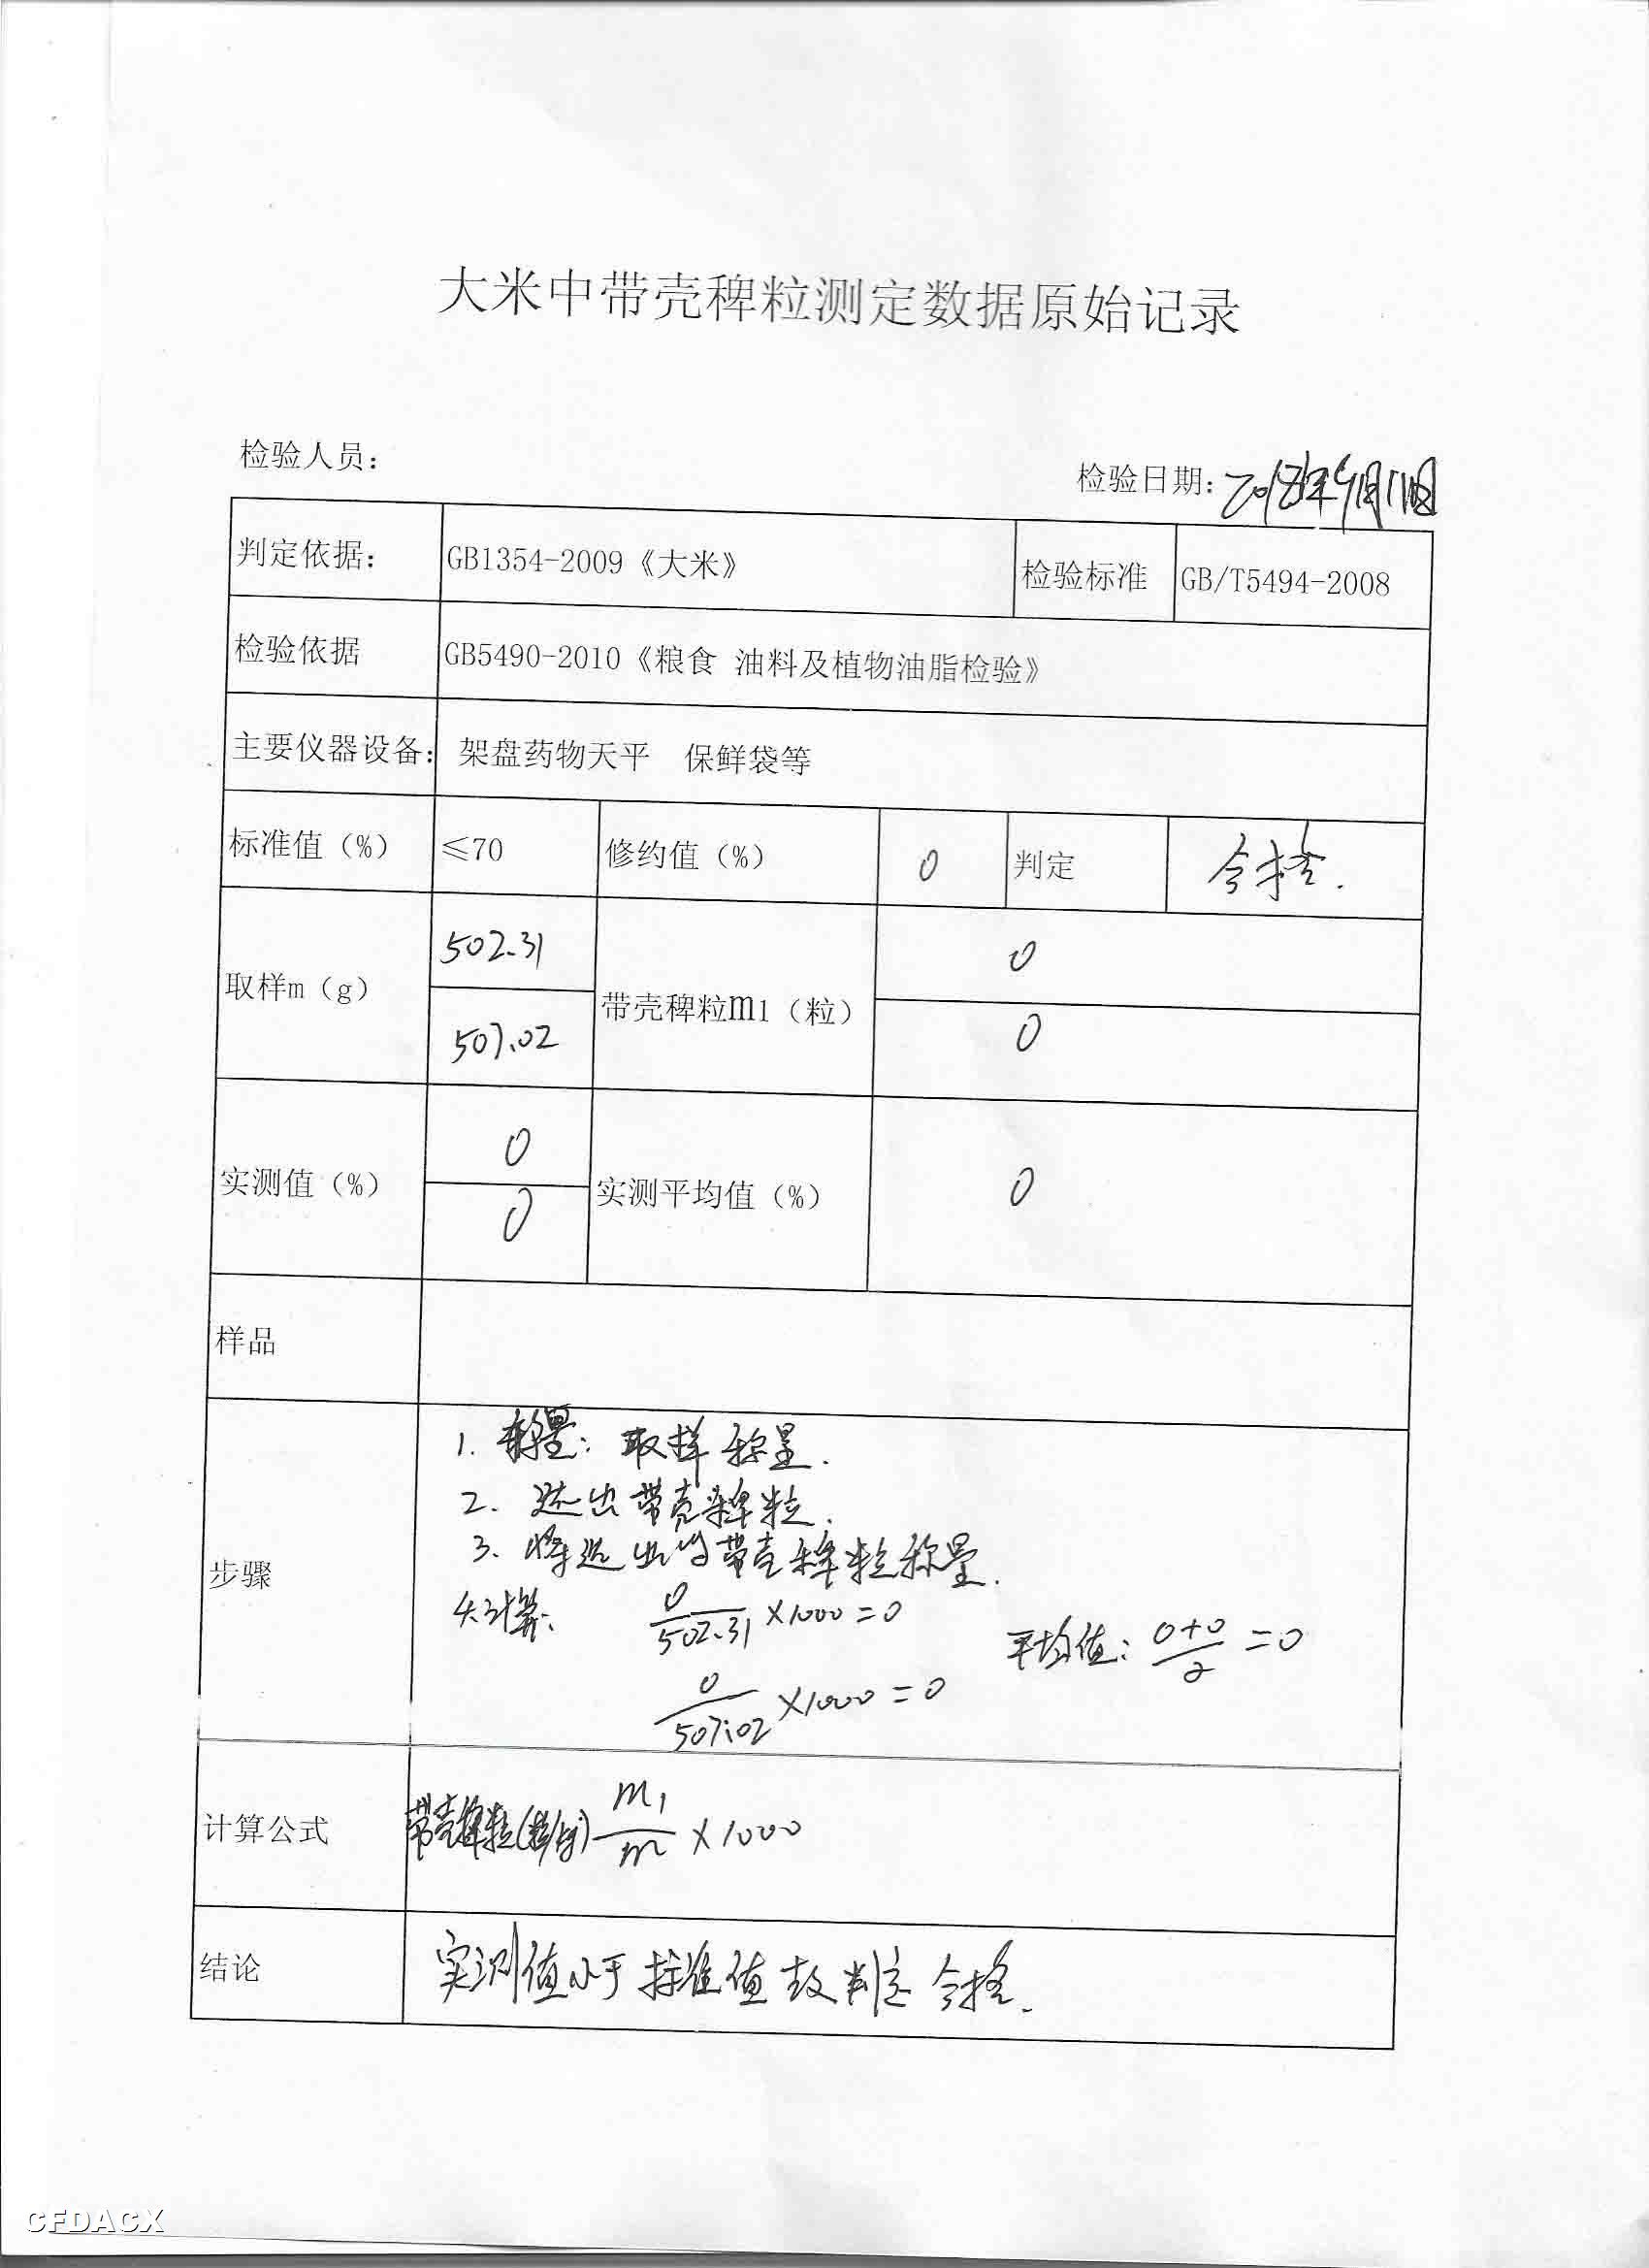 大米中带壳稗粒测定数据原始记录
检验人员：
检验日期：2018年9月11日
判定依据： GB1354-2009《大米》 检验标准 GB/T5494-2008
检验依据 GB5490-2010《粮食 油料及植物油脂检验》
主要仪器设备： 架盘药物天平 保鲜袋等
标准值（%） ≤70 修约值（%） 0 判定 合格.
取样m（g） 502.31 带壳稗粒m1（粒） 0
507.02 0
实测值（%） 0 实测平均值（%） 0
0
样品
步骤
1. 称量：取样称量.
2. 选出带壳稗粒.
3. 将选出的带壳稗粒称量.
4.计算: 0/502.31 ×1000=0
平均值：0+0/2 =0
0/507.02 ×1000=0
计算公式 带壳稗粒(粒/kg) m1/m ×1000
结论 实测值小于标准值故判定合格.
CFDACX